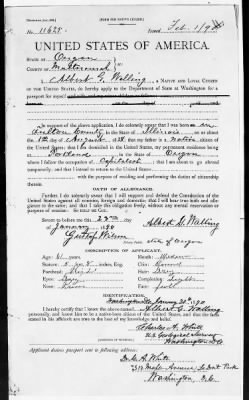 [FORM FOR NATIVE CITIZEN.]
No. 11625 Issued Feb. 1/90
UNITED STATES OF AMERICA.
STATE OF Oregon
COUNTY OF Multnomah
I, Albert G. Walling, A NATIVE AND LOYAL CITIZEN
OF THE UNITED STATES, do hereby apply to the Department of State at Washington for a
passport for myself
In support of the above application, I do solemnly swear that I was born in
Fulton County in the State of Illinois, on
the day of August, ; that my father is a native citizen
of the United States; that I am domiciled in the United States, my permanent residence being
at Portland, in the State of Oregon,
where I follow the occupation of Capitalist; that I am about to go abroad
temporarily; and that I intend to return to the United States
with the purpose of residing and performing the duties of citizenship therein.
OATH OF ALLEGIANCE.
Further, I do solemnly swear that I will support and defend the Constitution of the
United States against all enemies, foreign and domestic; that I will bear true faith and alle-
giance to the same; and that I take this obligation freely, without any mental reservation or
purpose of evasion: So help me God.
Sworn to before me this 23rd day
of January, 1890 Albert G. Walling
Gustaf Wilson
Notary Public. State of Oregon
DESCRIPTION OF APPLICANT.
Age: 61 years. Mouth: Medium
Stature: 5 feet, inches, Eng. Chin: Round
Forehead: High Hair: Gray
Eyes: Gray Complexion: Light
Nose: Face: Full
IDENTIFICATION.
Washington D.C. January 30th, 1890
I hereby certify that I know the above-named Albert G. Walling
personally, and know him to be a native-born citizen of the United States, and that the facts
stated in his affidavit are true to the best of my knowledge and belief.
Charles A. White
U.S. Geological Survey
Washington D.C.
[ADDRESS OF WITNESS.]
Applicant desires passport sent to following address:
Dr. C. A. White
Le Droit Park
Washington, D.C.